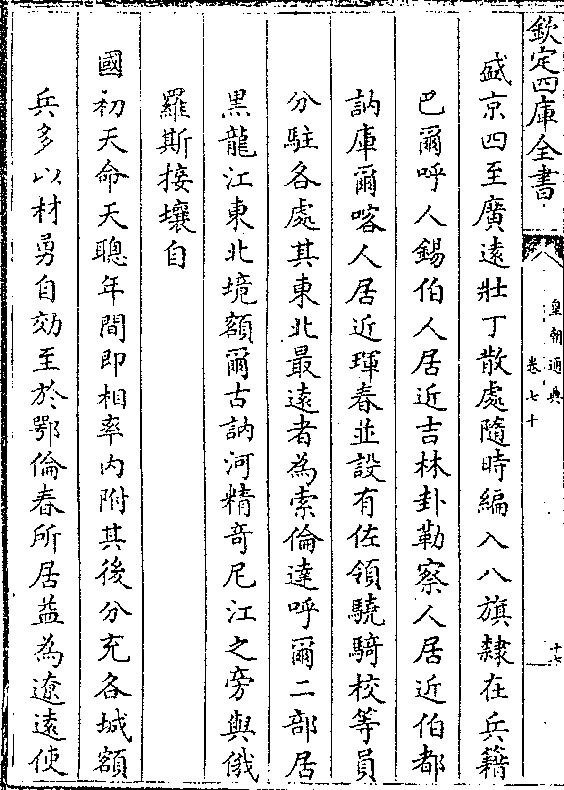 欽定四庫全書
皇朝通典
卷七十
十七
盛京四至廣遠壯丁散處隨時編入八旗隸在兵籍
巴爾呼人錫伯人居近吉林卦勒察人居近伯都
訥庫爾喀人居近琿春並設有佐領驍騎校等員
分駐各處其東北最遠者為索倫達呼爾二部居
黑龍江東北境額爾古訥河精奇尼江之旁與俄
羅斯接壤自
國初天命天聰年間即相率內附其後分充各城額
兵多以材勇自効至於鄂倫春所居益為遼遠使